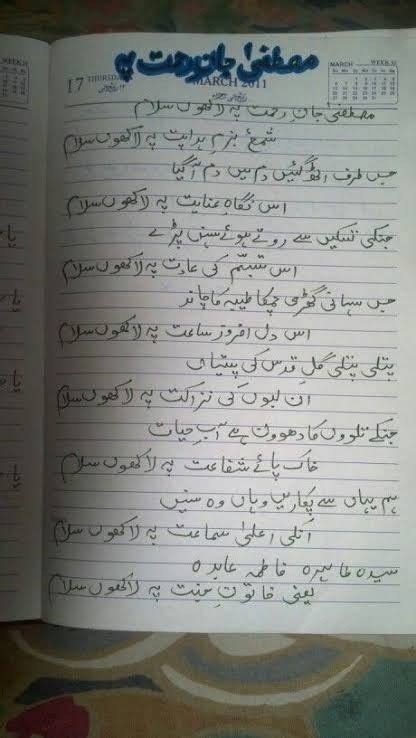 مصطفیٰ جانِ رحمت پہ
17 THURSDAY
MARCH 2011
MARCH WEEK 12
مصطفیٰ جان رحمت پہ لاکھوں سلام
شمع بزم ہدایت پہ لاکھوں سلام
جس طرف اٹھ گئیں دم میں دم آ گیا
اس نگاہِ عنایت پہ لاکھوں سلام
جنکی تسکیں سے روتے ہوئے ہنس پڑے
اس تبسّم کی عادت پہ لاکھوں سلام
جس سہانی گھڑی چمکا طیبہ کا چاند
اس دل افروز ساعت پہ لاکھوں سلام
پتلی پتلی گلِ قدس کی پتیاں
ان لبوں کی نزاکت پہ لاکھوں سلام
جنکے تلووں کا دھوون ہے آبِ حیات
خاک پائے شفاعت پہ لاکھوں سلام
ہم یہاں سے پکاریں وہاں وہ سنیں
انکی اعلیٰ سماعت پہ لاکھوں سلام
سیدہ طاہرہ فاطمہ عابدہ
یعنی خاتونِ جنت پہ لاکھوں سلام